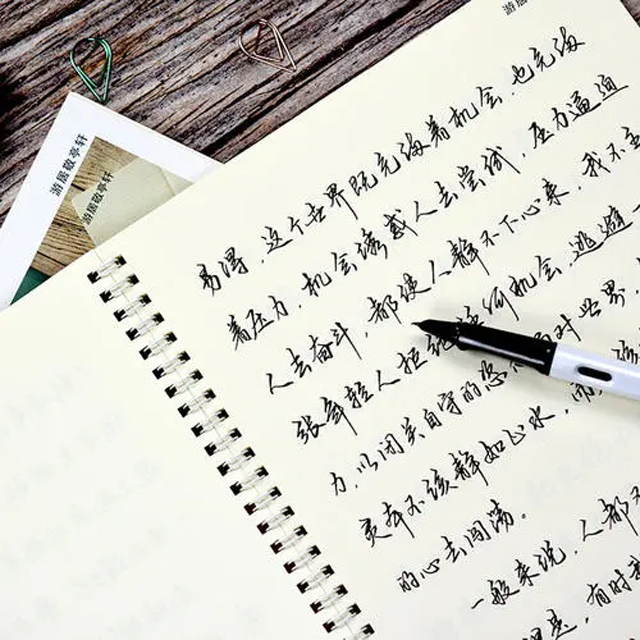 游居
游居敬亭轩
游居敬亭轩
易得,这个世界既充满着机会,也充满
着压力,机会诱惑人去尝试,压力逼迫
人去奋斗,都使人静不下心来,我不主
张年轻人拒绝任何机会,逃避一
力,以闭关自守的态 面对世界,
灵本不该静如止水,而
的心去闯荡。
一般来说,人都
有时